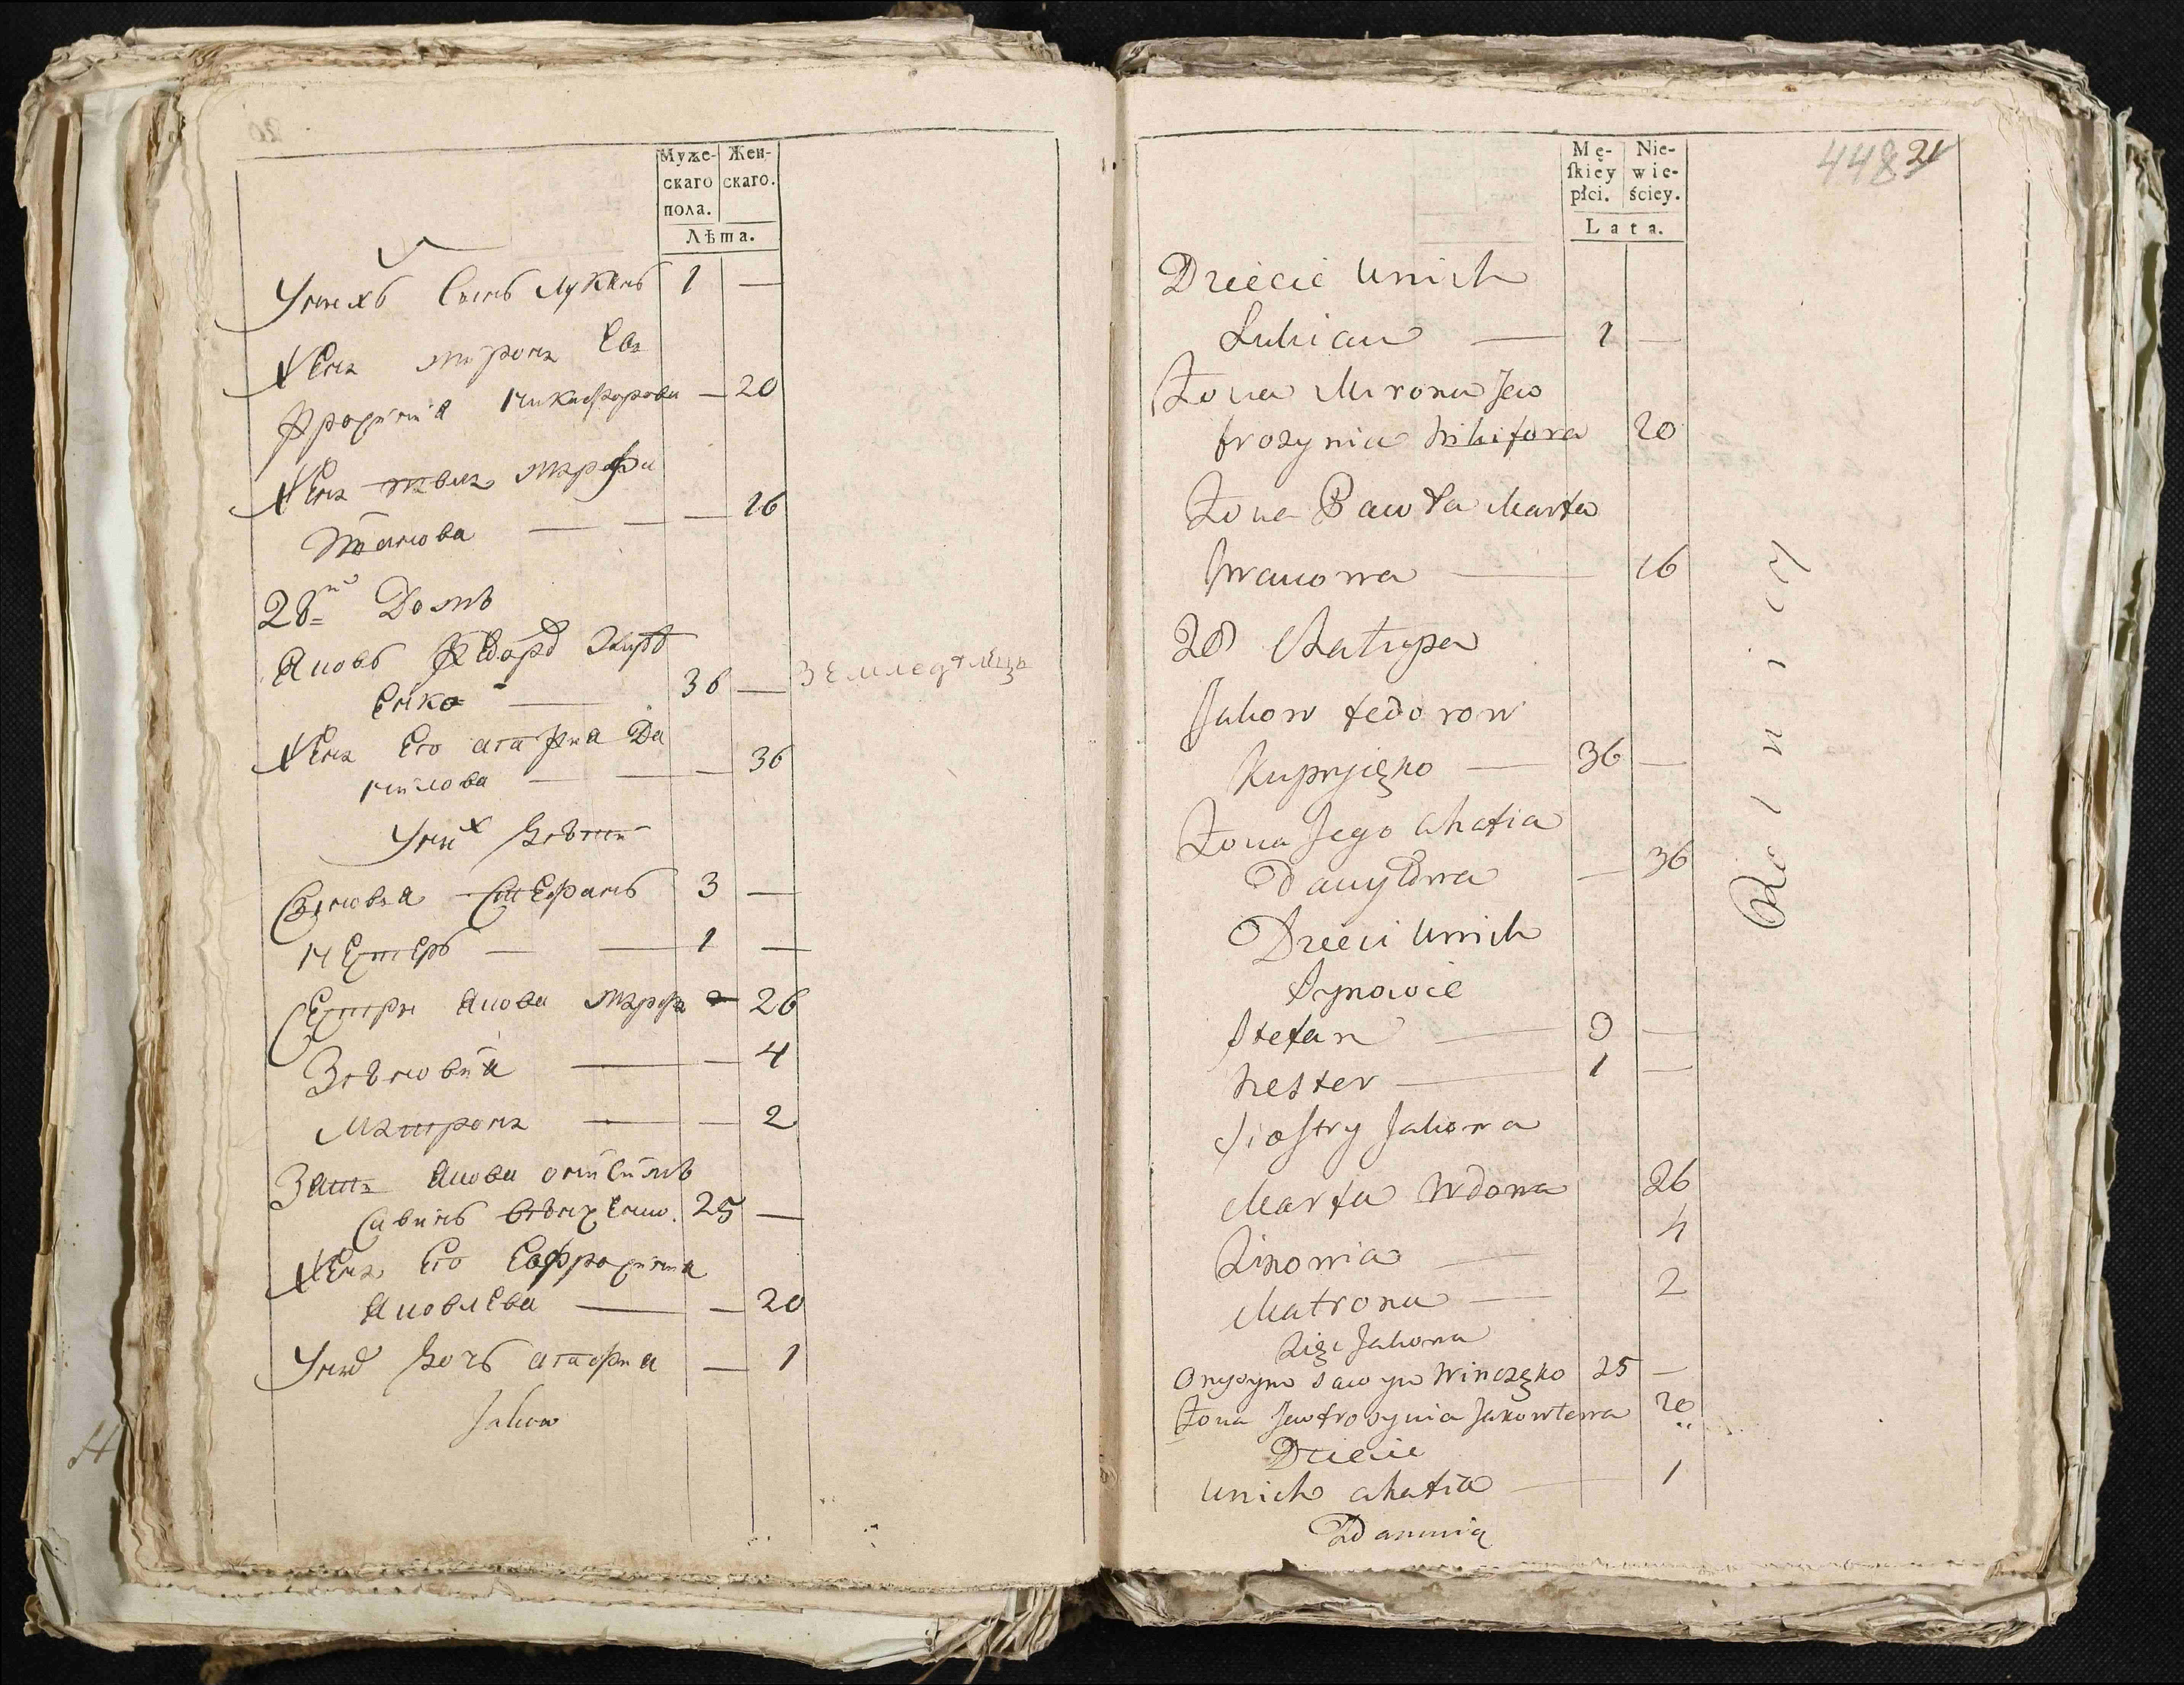 Муже- Жен-
скаго скаго.
пола.
Лѣта.
Унихъ Сынъ Лукянъ 1 —
Жена Мирона Ев
фросиния Никифорова — 20
Жена Павла Марфа
Иванова — — — 16
28й Домъ
Яковъ Федоръ Купрі
енко — 36 — Земледѣлецъ
Жена Его агафия Да
нилова — — — 36
Уних дѣти
Сыновья Стефанъ 3 —
Нестеръ — — 1 —
Сестры Якова Марфа — 26
Зѣновия — — 4
Матрона — — 2
Зять Якова онисимъ
Савинъ 25 —
Жена Его Евфросиния
Яковлева — — 20
Унихъ дочь агафия — 1
Jakow
Mę- Nie-
skiey wie-
płci. ściey.
Lata.
448 21
Dziecie Unich
Lukian — 1 —
Żona Mirona Jew
frozynia Nikifora 20
Żona Pawła Marta
Iwanowa — 16
28 Chałupa
Jakow fedorow
Kupryięko — 36 —
Żona Jego Ahafia
Danyłowa — 36
Dzieci Unich
Synowie
Stefan — 3 —
Nester — 1 —
Siostry Jakowa
Marta Wdowa 26
Zinowia — 4
Matrona — 2
Zięć Jakowa
Onysym Sawyn Winczęko 25 —
Żona Jewfrosynia Jakowlewa 20
Dziecie
Unich Ahafia — 1
Rolnicy